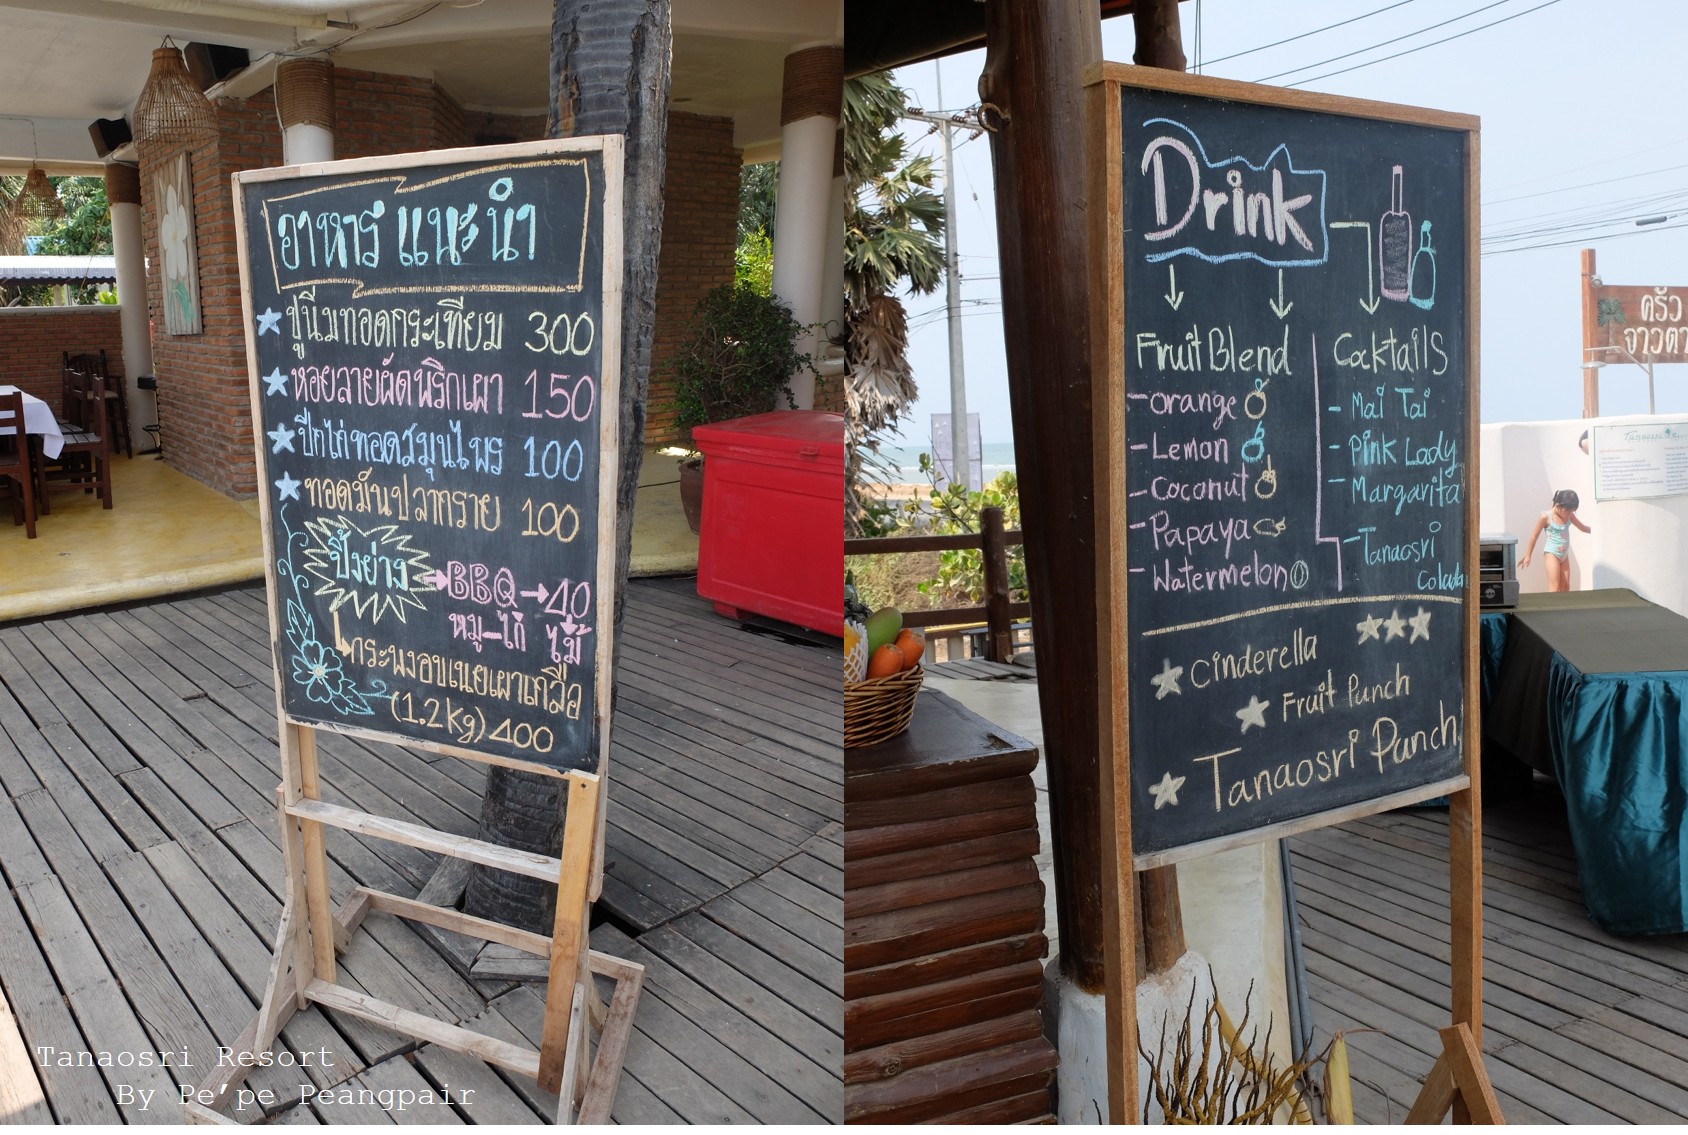 อาหารแนะนำ
ปูนิ่มทอดกระเทียม 300
หอยลายผัดพริกเผา 150
ปีกไก่ทอดสมุนไพร 100
ทอดมันปลากราย 100
ปิ้งย่าง BBQ 40
หมู-ไก่ ไม้
กระพงอบเนยเผาเกลือ
(1.2kg) 400
Tanaosri Resort
By Pe'pe Peangpair
Drink
Fruit Blend
- orange
- Lemon
- Coconut
- Papaya
- Watermelon
Cocktails
- Mai Tai
- Pink Lady
- Margarita
- Tanaosri
Colada
Cinderella
Fruit Punch
Tanaosri Punch
ครัว